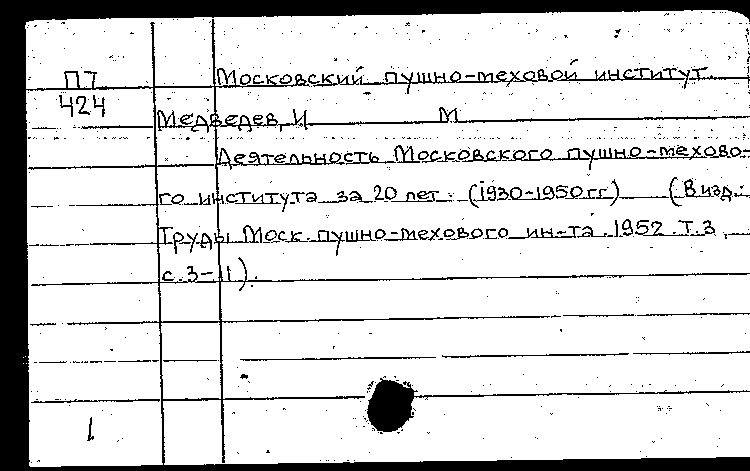 П7
424
Московский пушно-меховой институт.
Медведев, И М
Деятельность Московского пушно-мехово-
го института за 20 лет. (1930-1950гг) (В изд.:
Труды Моск. пушно-мехового ин-та. 1952. Т.3,
с.3-11).
1